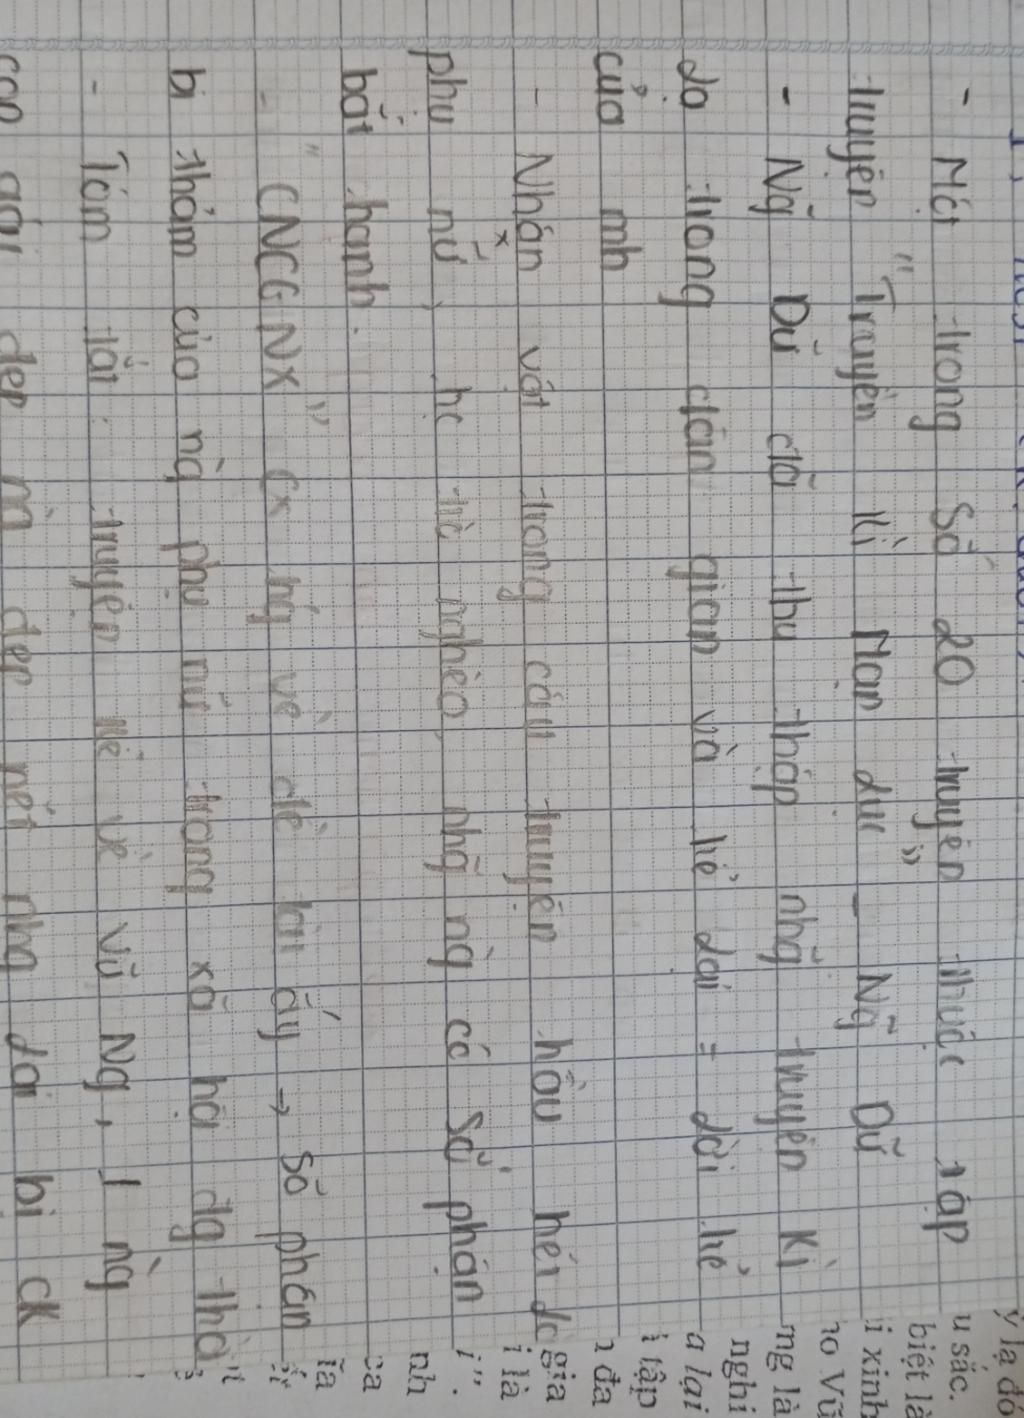 - Một trong số 20 truyện thuộc tập
truyện "Truyền kì Mạn lục" - Ng̃ Dữ
- Ng̃ Dữ đã thu thập nhg̃ truyện kì
lạ trong dân gian và kể lại = lời kể
của mh
- Nhân vật trong câu truyện hầu hết là
phụ nữ, họ từ nghèo, nhg̃ ng̀ có số phận
bất hạnh.
- "CNCGNX" cx ns về đề tài ấy → số phận
bi thảm của ng̀ phụ nữ trong xã hội đg thời
- Tóm tắt: truyện kể về Vũ Ng, 1 ng̀
con gái đẹp ng đẹp nết nhg lại bị ck
ỷ lạ đó
u sắc.
biệt là
i xinh
ào Vũ
mg là
nghi
a lại
i lập
đa
gia
i là
i".
nh
ĩa